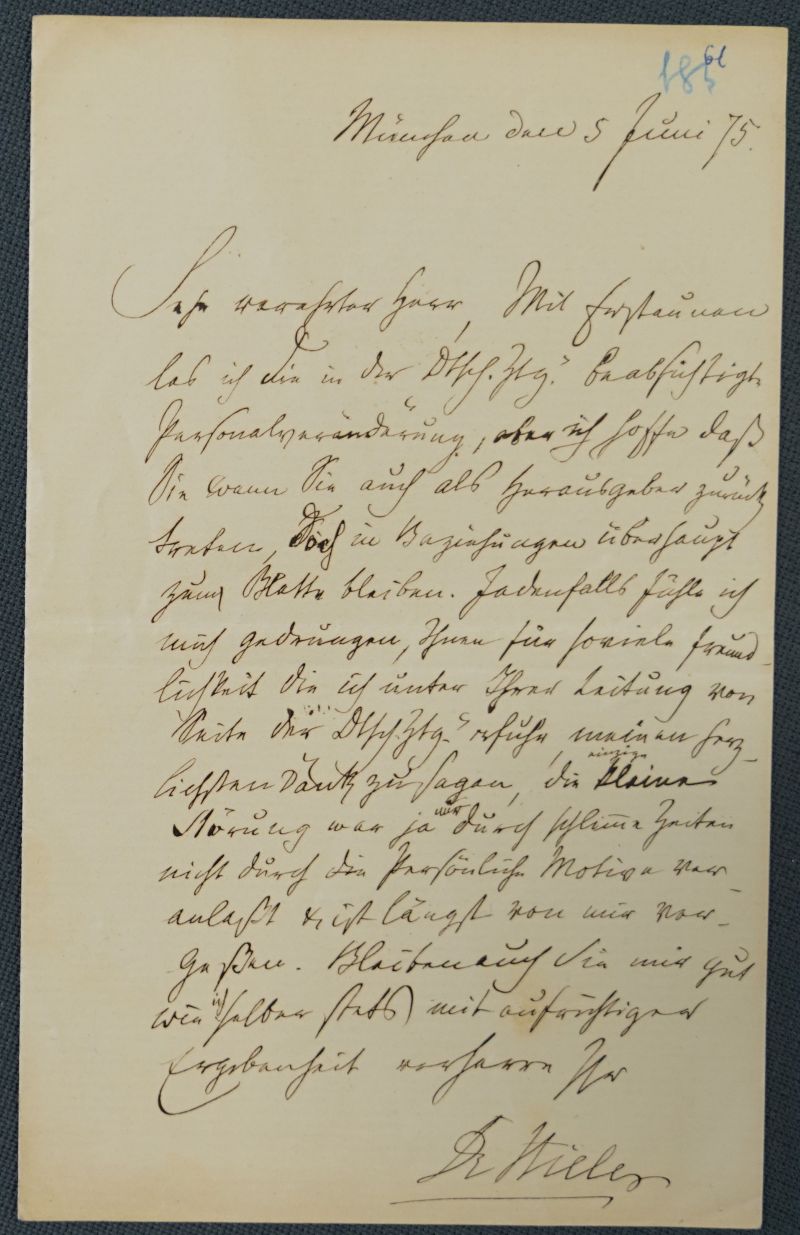 185
61
München den 5 Juni 75.
Sehr verehrter Herr, Mit Erstaunen
las ich die in der „Dtsch. Ztg." beabsichtigte
Personalveränderung, aber ich hoffe daß
Sie wenn Sie auch als Herausgeber zurück
treten, doch in Beziehungen überhaupt
zum Blatte bleiben. Jedenfalls fühle ich
mich gedrungen, Ihnen für soviele Freund-
lichkeit die ich unter Ihrer Leitung von
Seite der „Dtsch. Ztg." erfuhr, meinen herz-
lichsten Dank zu sagen, die einzige kleine
Störung war ja nur durch schlimme Zeiten
nicht durch die Persönliche Motive ver-
anlaßt & ist längst von mir ver-
geßen. Bleiben auch Sie mir gut
wie ich selber stets mit aufrichtiger
Ergebenheit verharre Ihr
Dr Stieler